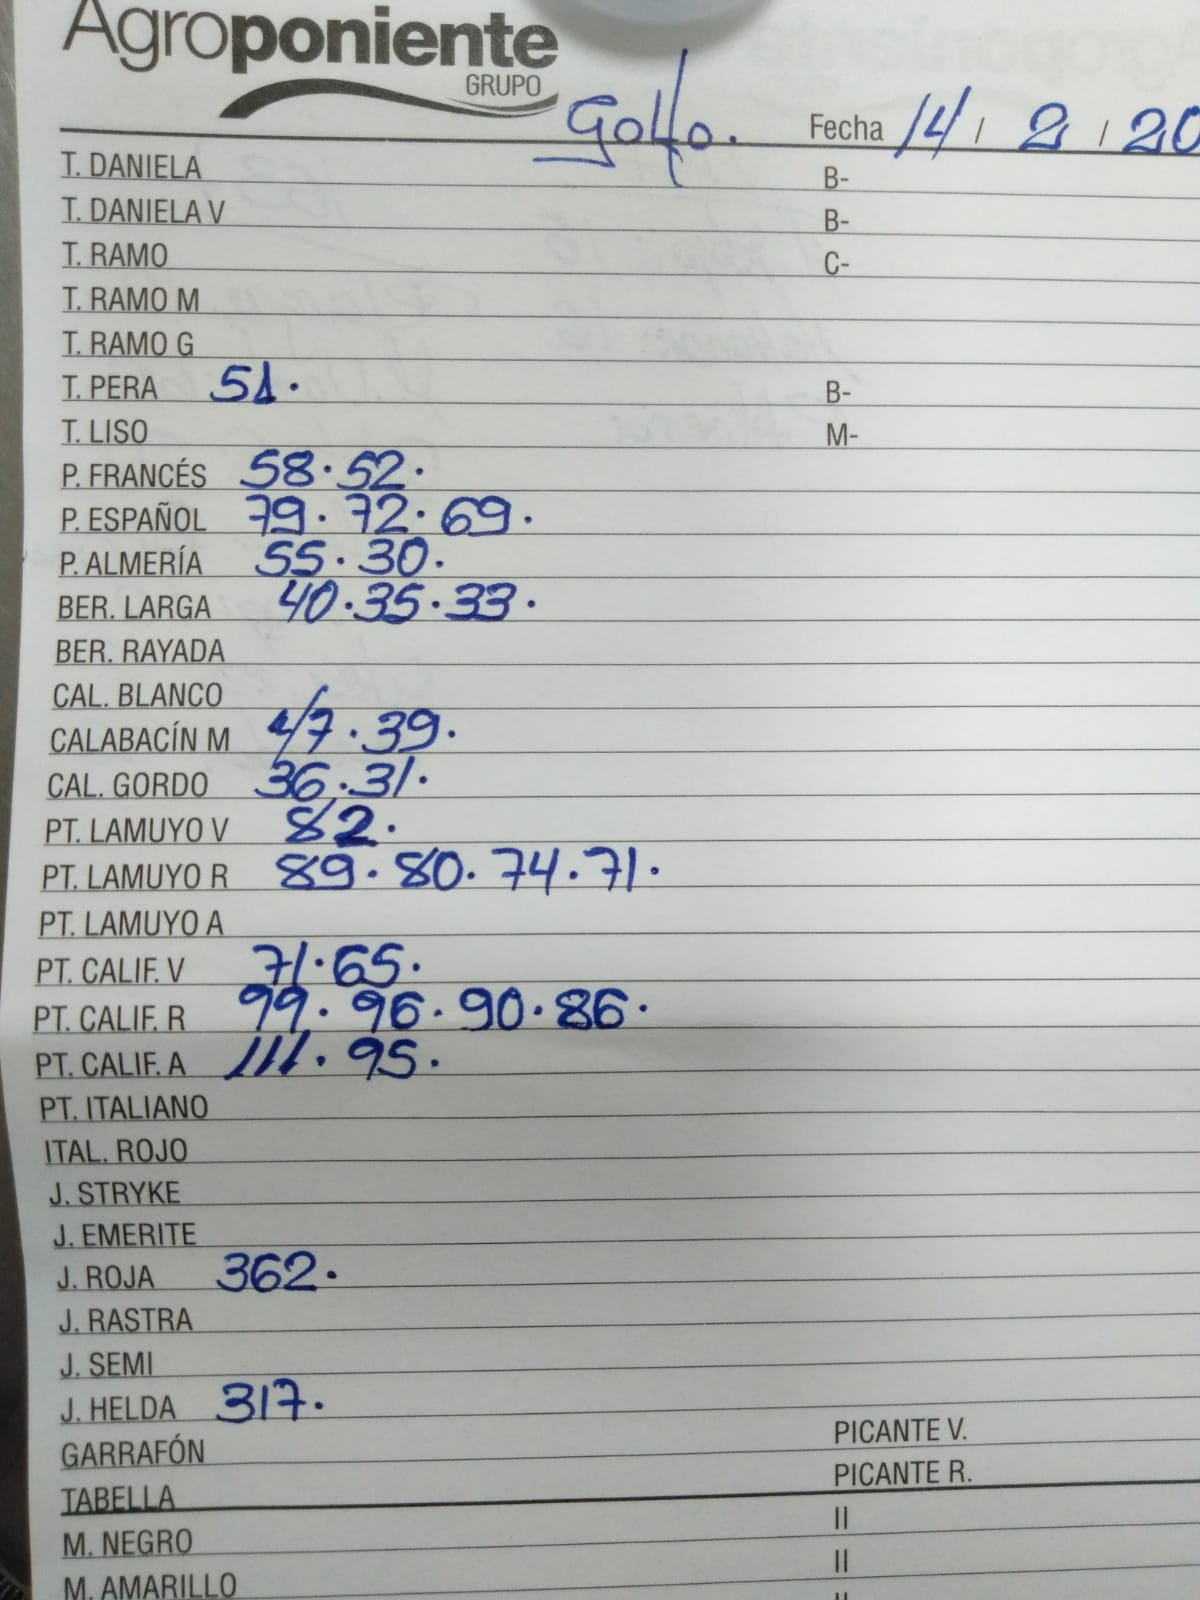 Agroponiente
GRUPO
Golfo. Fecha 14 / 2 / 20
T. DANIELA B-
T. DANIELA V B-
T. RAMO C-
T. RAMO M
T. RAMO G
T. PERA 51. B-
T. LISO M-
P. FRANCÉS 58.52.
P. ESPAÑOL 79.72.69.
P. ALMERÍA 55.30.
BER. LARGA 40.35.33.
BER. RAYADA
CAL. BLANCO
CALABACÍN M 47.39.
CAL. GORDO 36.31.
PT. LAMUYO V 82.
PT. LAMUYO R 89.80.74.71.
PT. LAMUYO A
PT. CALIF. V 71.65.
PT. CALIF. R 99.96.90.86.
PT. CALIF. A 111.95.
PT. ITALIANO
ITAL. ROJO
J. STRYKE
J. EMERITE
J. ROJA 362.
J. RASTRA
J. SEMI
J. HELDA 317.
GARRAFÓN PICANTE V.
TABELLA PICANTE R.
M. NEGRO II
M. AMARILLO II